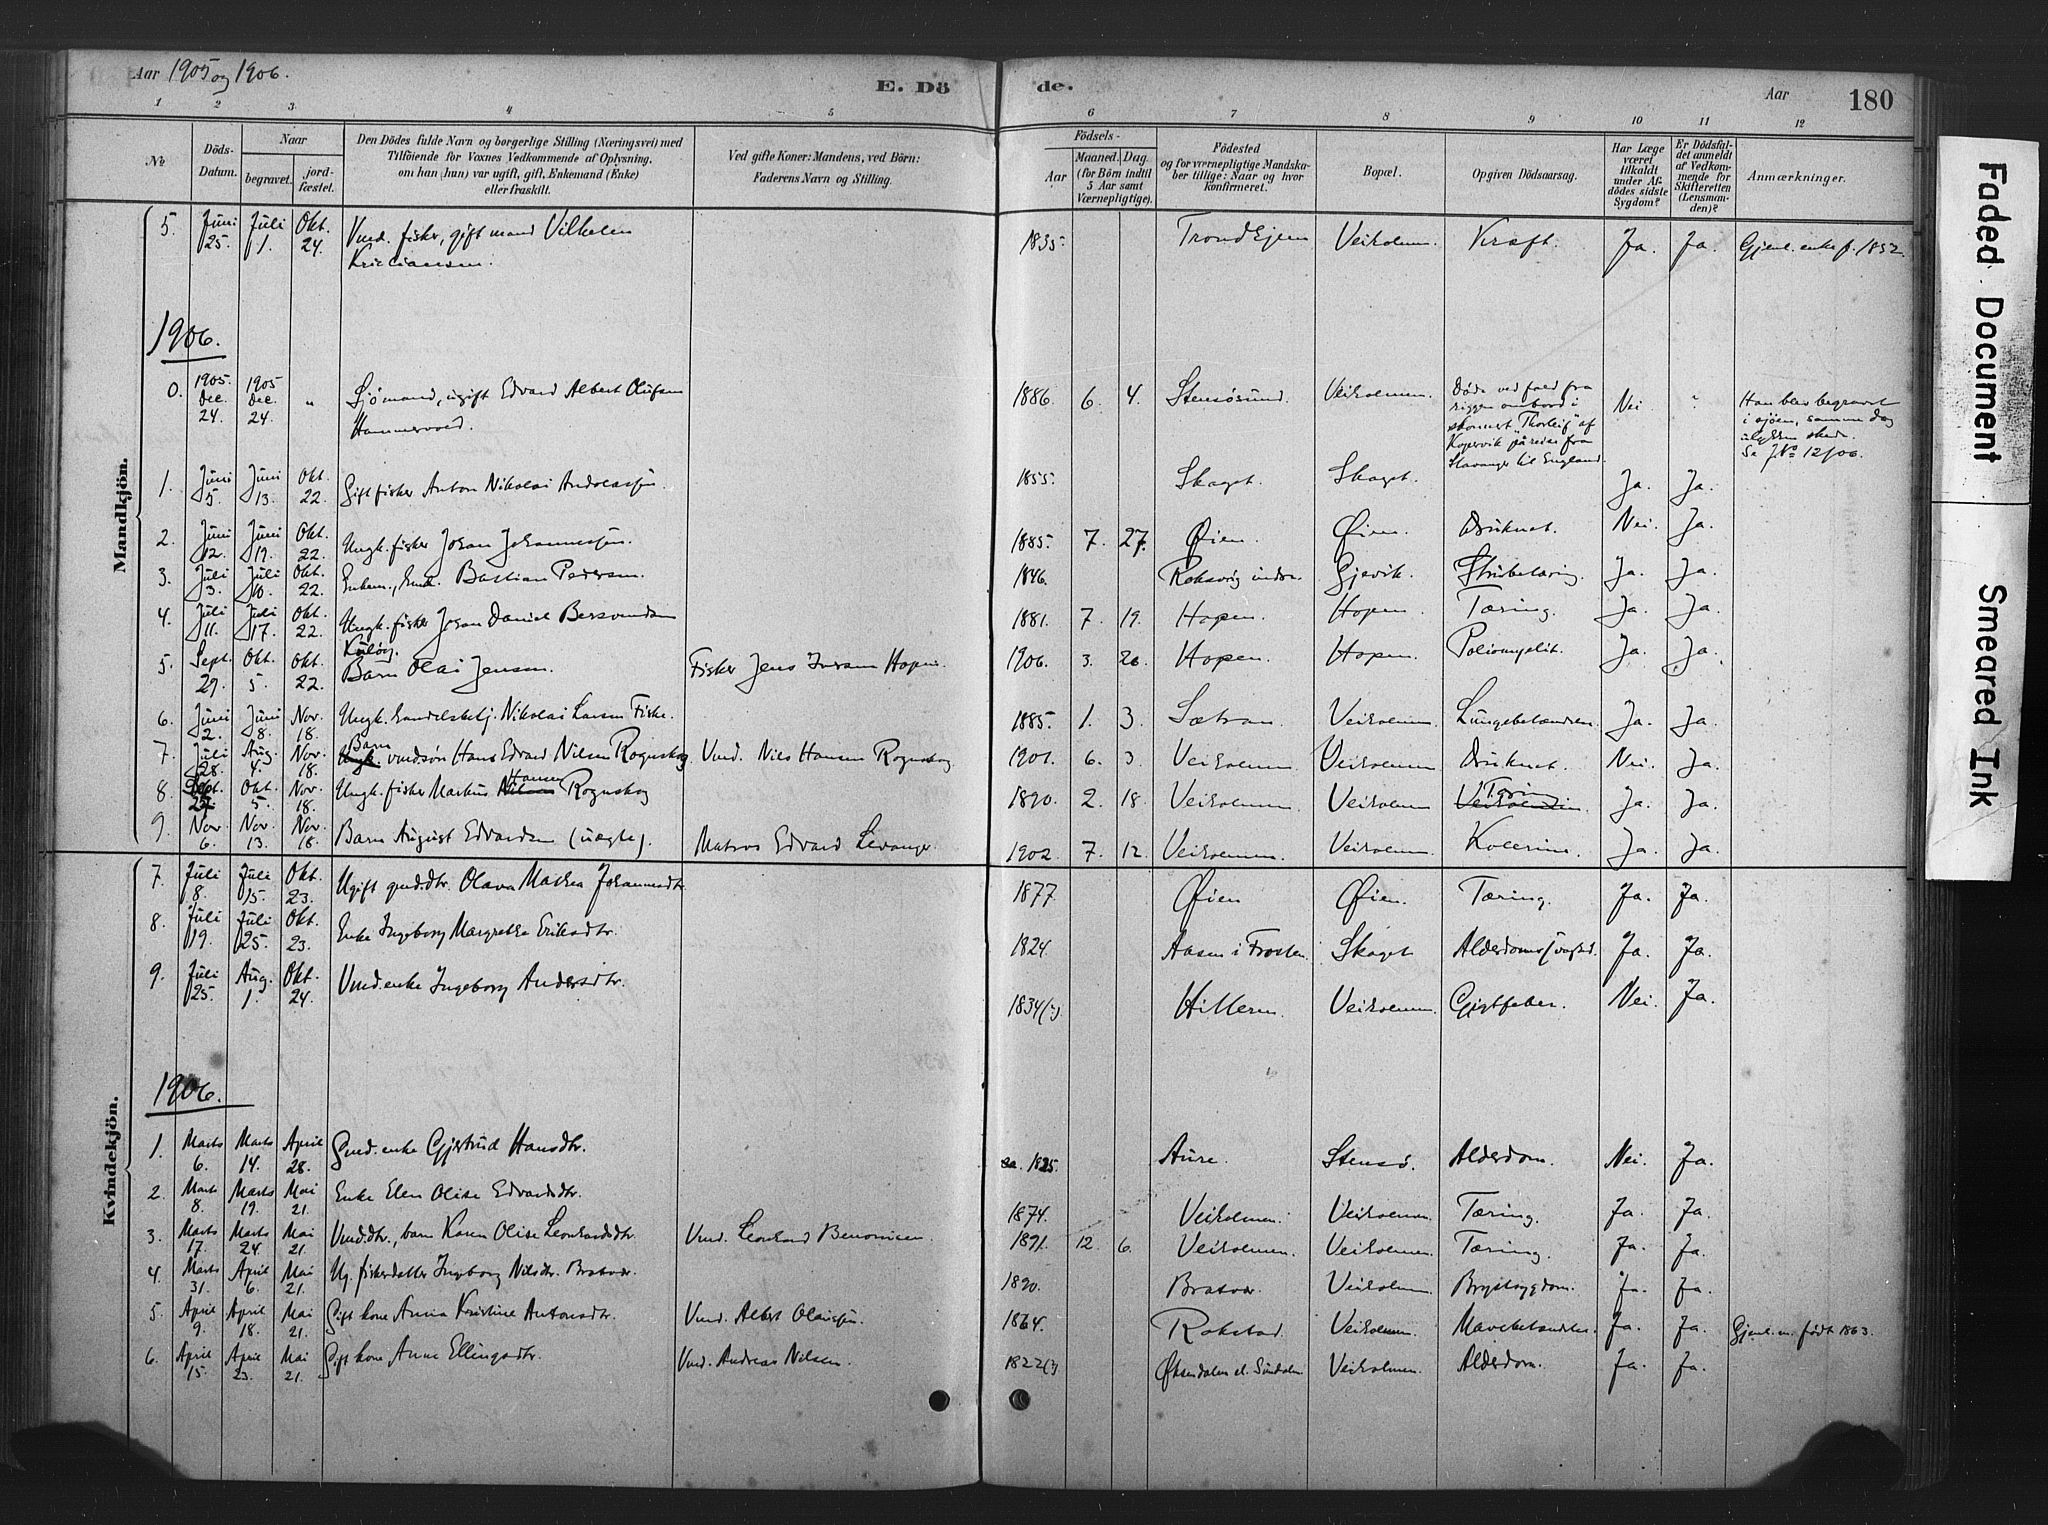 Aar 1905 og 1906.
E. Döde.
Aar
180
1 2 3 4 5 6 7 8 9 10 11 12
№
Döds-Datum.
Naar
begravet.
jord-fæstet.
Den Dödes fulde Navn og borgerlige Stilling (Næringsvei) med
Tilföiende for Voxnes Vedkommende af Oplysning,
om han (hun) var ugift, gift, Enkemand (Enke)
eller fraskilt.
Ved gifte Koner: Mandens, ved Börn:
Faderens Navn og Stilling.
Födsels-
Aar
Maaned.
Dag.
(for Börn indtil
5 Aar samt
Værnepligtige).
Födested
og for værnepligtige Mandska-
ber tillige: Naar og hvor
konfirmeret.
Bopæl.
Opgiven Dödsaarsag.
Har Læge
været
tilkaldt
under Af-
dödes sidste
Sygdom?
Er Dödsfal-
det anmeldt
af Vedkom-
mende for
Skifteretten
(Lensman-
den)?
Anmærkninger.
Mandkjön.
5. Juni 25. Juli 1. Okt. 24. Vmd. fisker, gift mand Vilhelm 1835. Trondhjem Veiholmen. Kræft. Ja. Ja. Gjenl. enke f. 1852
1906.
0. 1905. Dec. 24. 1905 Dec. 24. „ Sjømand, ugift Edvard Albert Olufsen
Hammervold. 1886. 6. 4. Stensösund. Veiholmen. Døde ved fald fra
riggen ombord i
skonnert "Thorleif" af
Kopervik på reise fra
Stavanger til England. Nei „ Han blev begravet
i sjøen, samme dag
ulykken skede.
Se J№ 12/06.
1. Juni 5. Juni 13. Okt. 22. Gift fisker Anton Nikolai Andreassen. 1855. Skaget. Skaget. Ja. Ja.
2. Juni 12. Juni 19. Okt. 22. Ungk. fisker Johan Johannessen. 1885. 7. 27. Øien. Øien. Druknet. Nei. Ja.
3. Juli 3. Juli 10. Okt. 22. Enkem., Bastian Pedersen. 1846. Roksvåg indre. Gjevik. Strubetæring. Ja. Ja.
4. Juli 11. Juli 17. Okt. 22. Ungk. fisker Johan Daniel 1881. 7. 19. Hopen. Hopen. Tæring. Ja. Ja.
5. Sept. 29. Okt. 5. Okt. 22. Barn Olai Jensen. Fisker Jens Hopen. 1906. 3. 26. Hopen. Hopen. Poliomyelit. Ja. Ja.
6. Juni 2. Juni 8. Nov. 18. Ungk. handelsbetj. Nikolai Larsen Fiske. 1885. 1. 3. Sætran Veiholmen. Lungebetændelse. Ja. Ja.
7. Juli 28. Aug. 4. Nov. 18. Barn vmdsøn Hans Edvard Nilsen Rognskog Vmd. Nils Hansen Rognskog 1901. 6. 3. Veiholmen. Veiholmen Druknet. Nei. Ja.
8. Sept. 27. Okt. 5. Nov. 18. Ungk. fisker Markus Nilsen Hansen Rognskog 1890. 2. 18. Veiholmen. Veiholmen Veiholmen Tæring Ja. Ja.
9. Nov. 6. Nov. 13. Nov. 18. Barn August Edvardsen (uægte). Matros Edvard Levanger. 1902. 7. 12. Veiholmen. Veiholmen. Kolerine. Ja. Ja.
Kvindekjön.
7. Juli 8. Juli 15. Okt. 23. Ugift gmd.dtr. Olava Mathea Johannesdtr. 1877. Øien Øien. Tæring. Ja. Ja.
8. Juli 19. Juli 25. Okt. 23. Enke Ingeborg Margrethe Eriksdtr. 1824. Aasen i Frosten. Skaget Ja. Ja.
9. Juli 25. Aug. 1. Okt. 24. Vmd.enke Ingeborg Andersdtr. 1834 (?) Hitteren. Veiholmen. Gigtfeber. Nei. Ja.
1906.
1. Marts 6. Marts 14. April 28. Gmd. enke Gjertrud Hansdtr. ca. 1825. Aure. Stensö. Alderdom. Nei. Ja.
2. Marts 8. Marts 19. Mai 21. Enke Elen Olise Edvardsdtr. 1874. Veiholmen. Veiholmen. Tæring. Ja. Ja.
3. Marts 17. Marts 24. Mai 21. Vmd.dtr., barn Karen Olise Leonhardsdtr. Vmd. Leonhard Benonisen. 1891. 12. 6. Veiholmen. Veiholmen. Tæring. Ja. Ja.
4. Marts 31. April 6. Mai 21. Ug. fiskerdatter Ingeborg Nilsdtr. Bratvær. 1890. Bratvær Veiholmen. Brystsygdom. Ja. Ja.
5. April 9. April 18. Mai 21. Gift kone Anna Kristine Antonsdtr. Vmd. Albert Olaussen. 1864. Rokstad. Veiholmen. Ja. Ja. Gjenl. m. født 1863.
6. April 15. April 23. Mai 21. Gift kone Anne Ellingsdtr. Vmd. Andreas Nilsen. 1822 (?) Øksendalen el. Sundalen Veiholmen Alderdom. Ja. Ja.
Faded Document
Smeared Ink